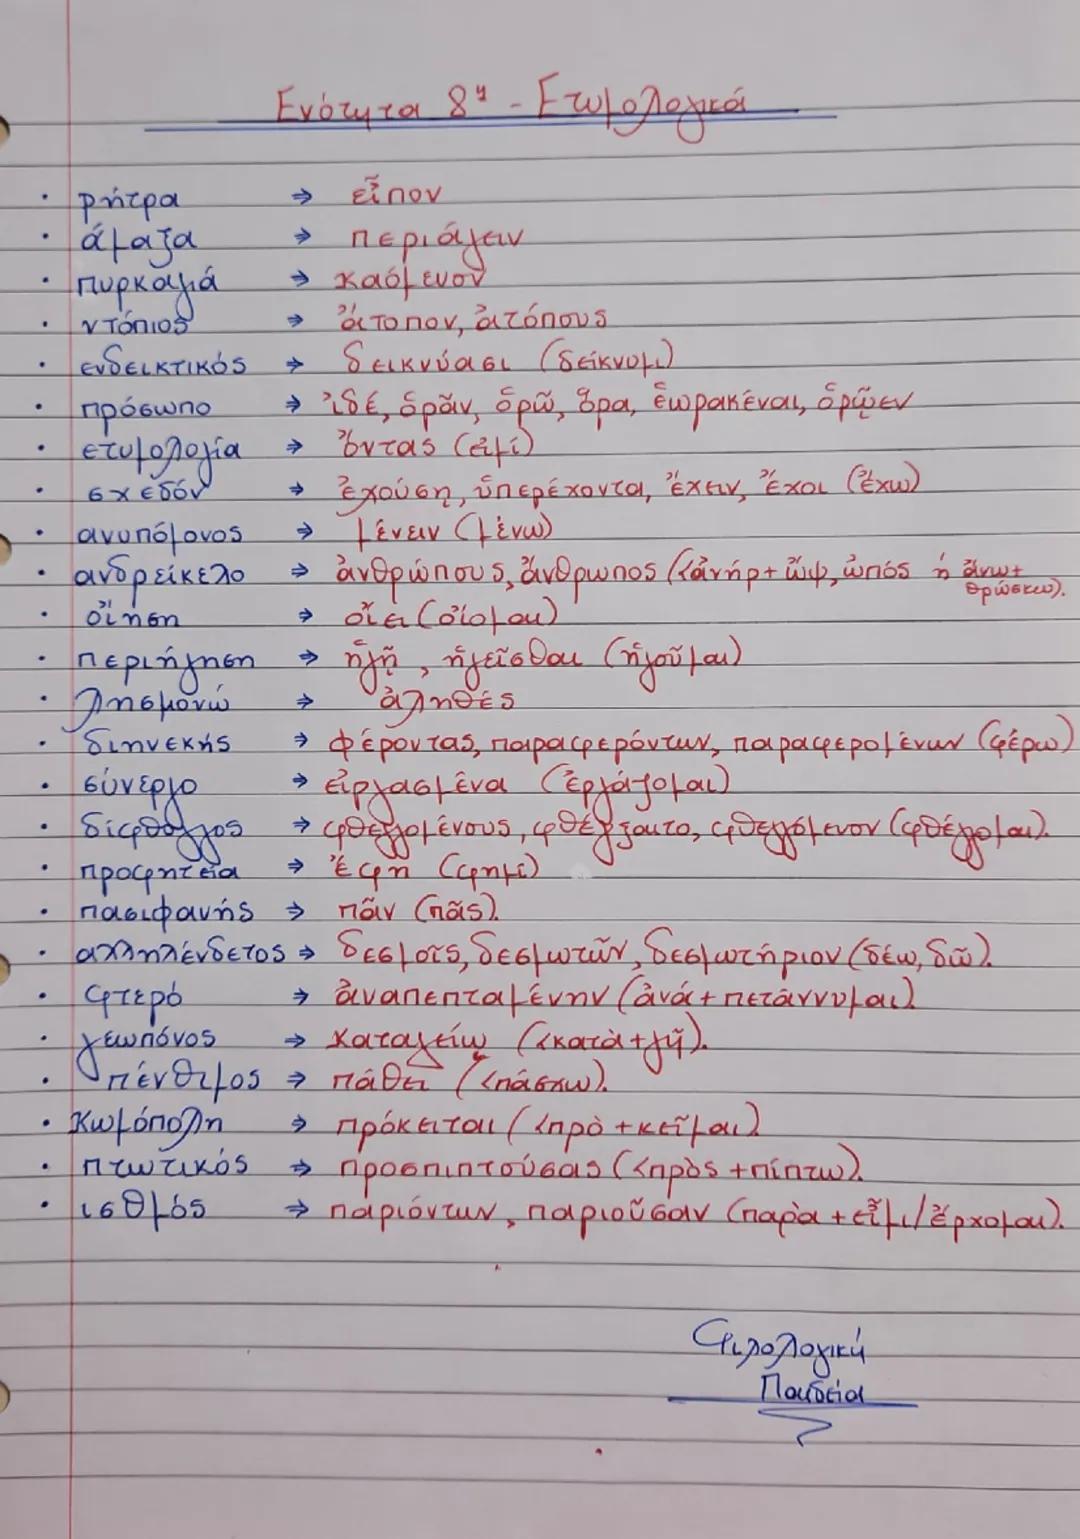 Ενότητα 8η - Ετυμολογικά
• ρήτρα ⇒ εἶπον
• άμαξα ⇒ περιάγειν
• πυρκαγιά ⇒ καόμενον
• ντόπιος ⇒ ἄτοπον, ἀτόπους
• ενδεικτικός ⇒ δεικνύασι (δείκνυμι)
• πρόσωπο ⇒ ἰδέ, ὁρᾶν, ὁρῶ, ὅρα, ἑωρακέναι, ὁρῷεν
• ετυμολογία ⇒ ὄντας (εἰμί)
• σχεδόν ⇒ ἐχούσῃ, ὑπερέχοντα, ἔχειν, ἔχοι (ἔχω)
• ανυπόμονος ⇒ μένειν (μένω)
• ανδρείκελο ⇒ ἀνθρώπους, ἄνθρωπος (<ἀνήρ + ὤψ, ὠπός ἤ ἄνω + θρώσκω).
• οἴηση ⇒ οἴει (οἴομαι)
• περιήγηση ⇒ ἡγῇ, ἡγεῖσθαι (ἡγοῦμαι)
• λησμονώ ⇒ ἀληθές
• διηνεκής ⇒ φέροντας, παραφερόντων, παραφερομένων (φέρω)
• σύνεργο ⇒ εἰργασμένα (ἐργάζομαι)
• δίφθογγος ⇒ φθεγγομένους, φθέγξαιτο, φθεγγόμενον (φθέγγομαι).
• προφητεία ⇒ ἔφη (φημί)
• πασιφανής ⇒ πᾶν (πᾶς).
• αλληλένδετος ⇒ δεσμοῖς, δεσμωτῶν, δεσμωτήριον (δέω, δῶ).
• φτερό ⇒ ἀναπεπταμένην (ἀνά + πετάννυμαι)
• γεωπόνος ⇒ καταγείῳ (<κατὰ + γῆ).
• πένθιμος ⇒ πάθει (<πάσχω).
• Κωμόπολη ⇒ πρόκειται (<πρὸ + κεῖμαι)
• πτωτικός ⇒ προσπιπτούσας (<πρὸς + πίπτω).
• ισθμός ⇒ παριόντων, παριοῦσαν (παρὰ + εἶμι/ἔρχομαι).
Φιλολογική
Παιδεία